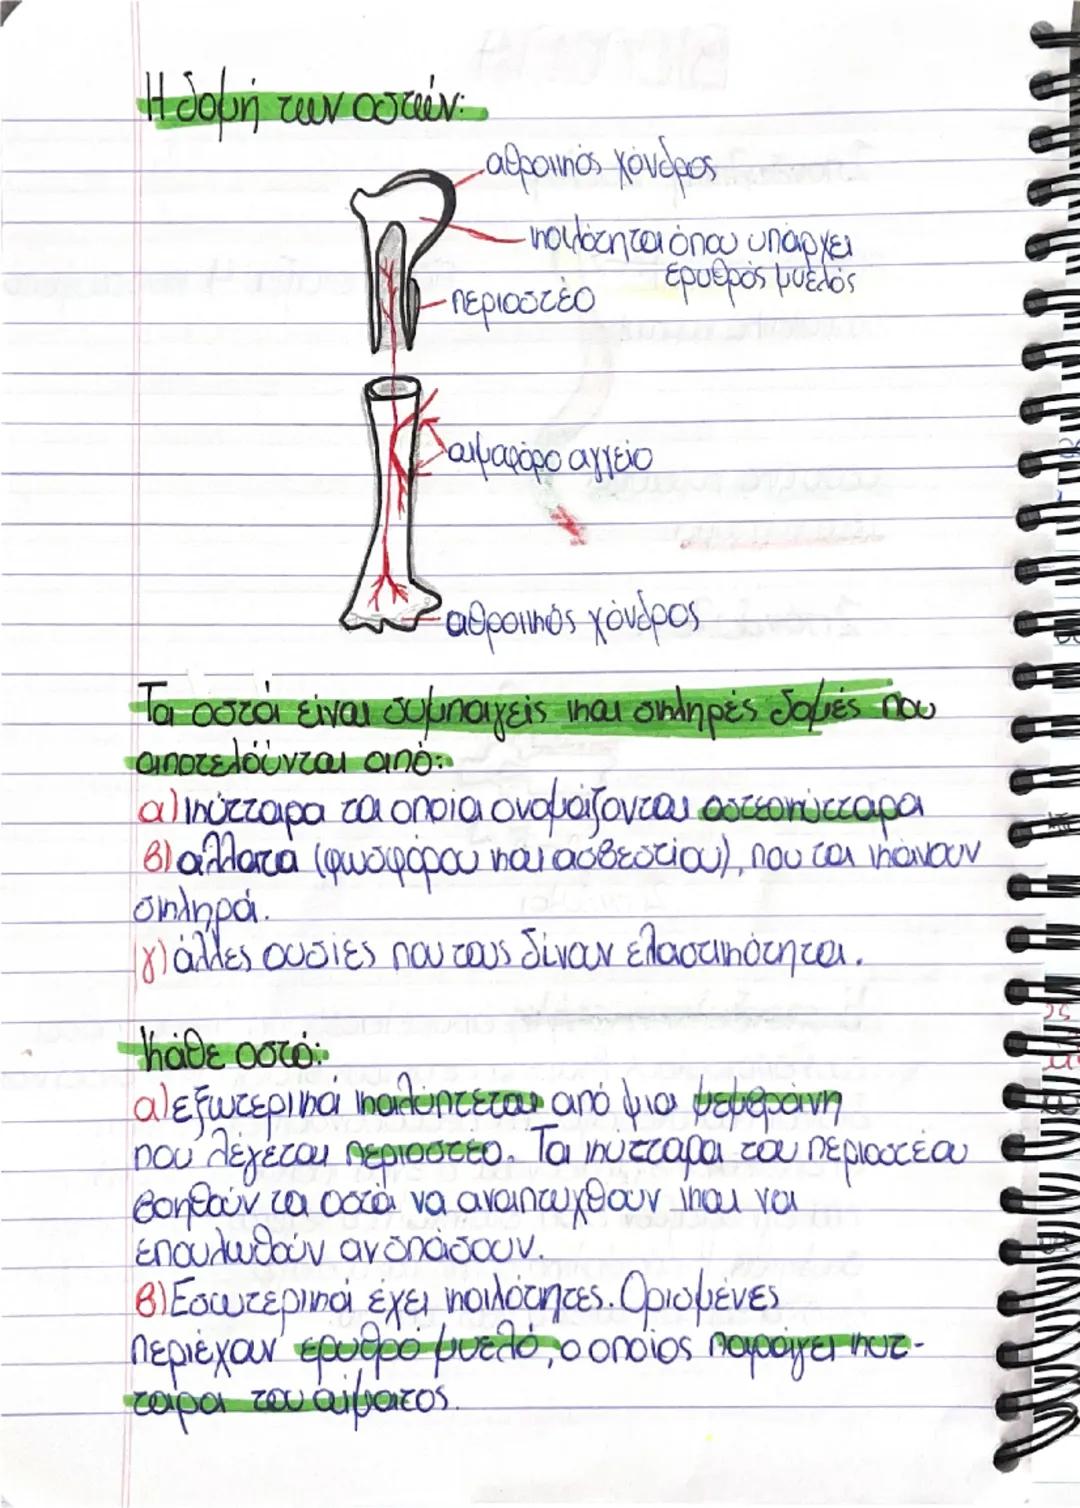 Η δομή των οστών:
αθροικός χόνδρος
κοιλότητα όπου υπάρχει
ερυθρός μυελός
περιοστέο
αιμοφόρο αγγείο
αθροικός χόνδρος
Τα οστά είναι συμπαγείς και σκληρές δομές που
αποτελούνται από:
α) κύτταρα τα οποία ονομάζονται οστεοκύτταρα
β) άλλατα (φωσφόρου και ασβεστίου), που τα κάνουν
σκληρά.
γ) άλλες ουσίες που τους δίνουν ελαστικότητα.
Κάθε οστό:
α) εξωτερικά καλύπτεται από μια μεμβράνη
που λέγεται περιοστέο. Τα κύτταρα του περιοστέου
βοηθούν τα οστά να αναπτυχθούν και να
επουλωθούν αν σπάσουν.
β) Εσωτερικά έχει κοιλότητες. Ορισμένες
περιέχουν ερυθρό μυελό, ο οποίος παράγει κύτ-
ταρα του αίματος.